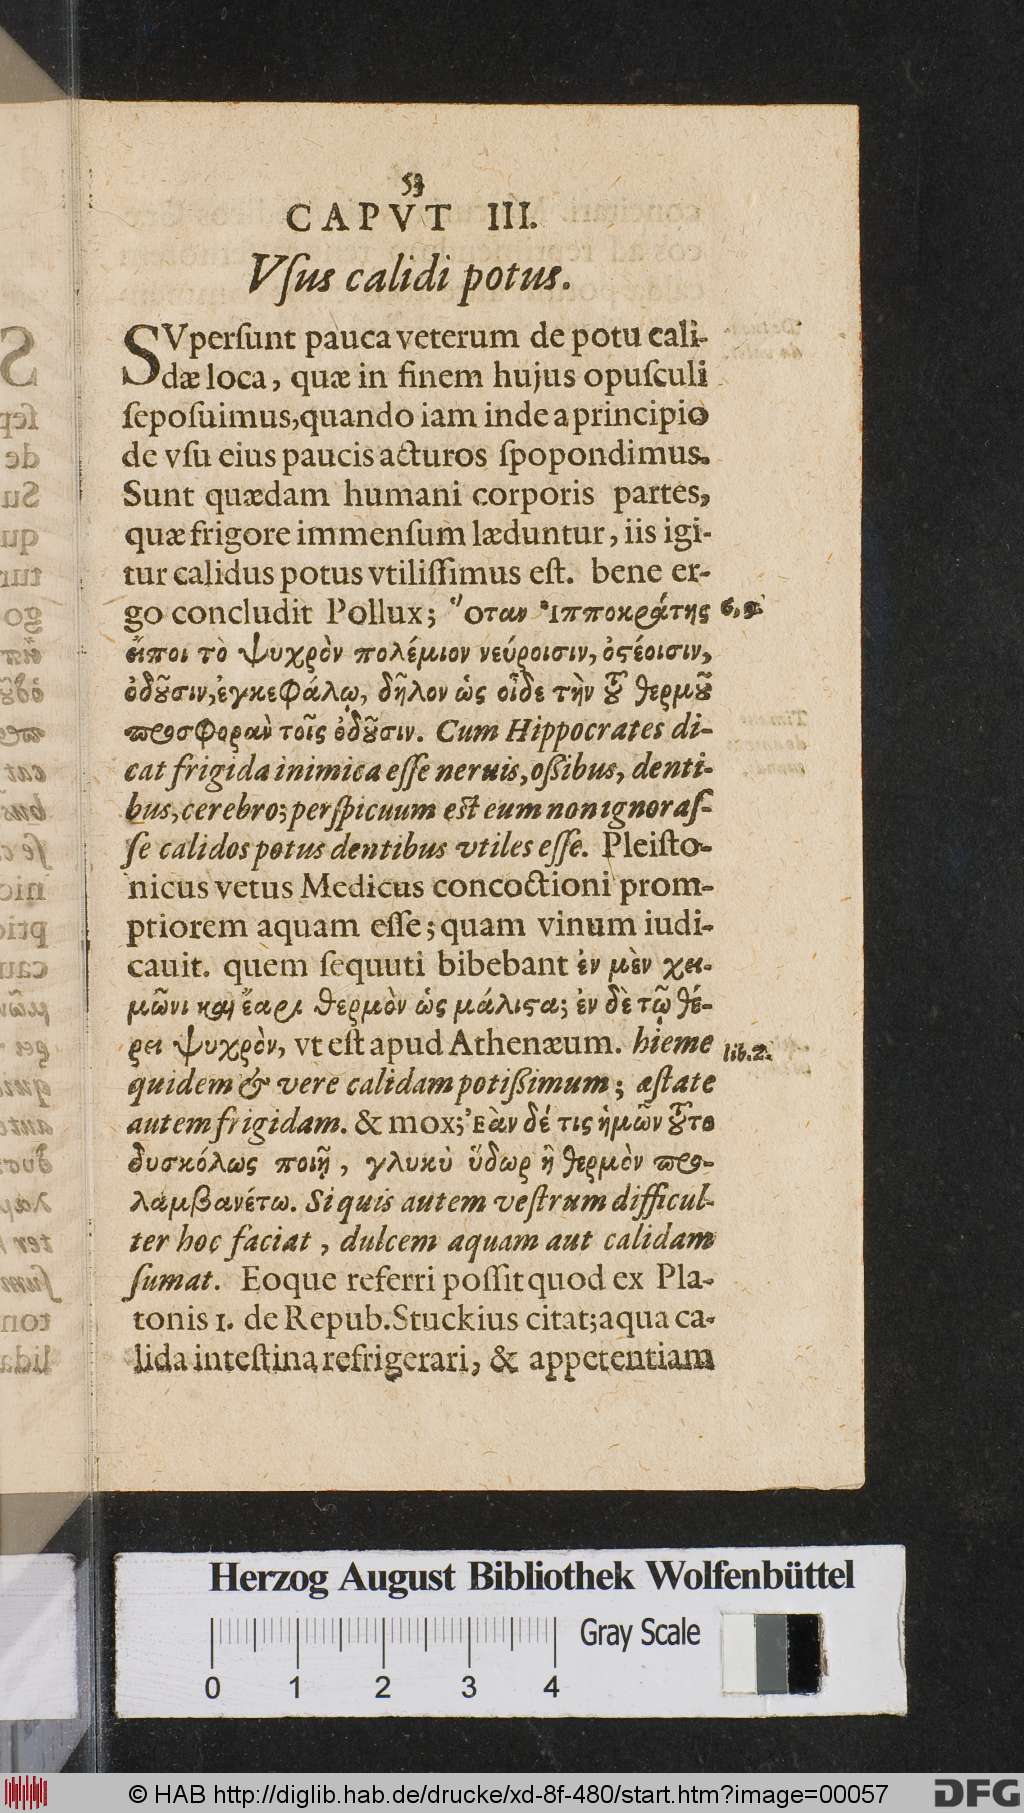 53
CAPVT III.
Vſus calidi potus.
SVperſunt pauca veterum de potu cali-
dæ loca, quæ in finem hujus opuſculi
ſepoſuimus, quando iam inde a principio
de vſu eius paucis acturos ſpopondimus.
Sunt quædam humani corporis partes,
quæ frigore immenſum læduntur, iis igi-
tur calidus potus vtiliſſimus eſt. bene er-
go concludit Pollux; Ὅταν Ἱπποκράτης
εἴποι τὸ ψυχρὸν πολέμιον νεύροισιν, ὀϛέοισιν,
ὀδȣ͂σιν, ἐγκεφάλῳ, δῆλον ὡς οἶδε τὴν τȣ͂ θερμȣ͂
προσφορὰν τοῖς ὀδȣ͂σιν. Cum Hippocrates di-
cat frigida inimica eſſe neruis, oſſibus, denti-
bus, cerebro; perſpicuum eſt eum non ignoraſ-
ſe calidos potus dentibus vtiles eſſe. Pleiſto-
nicus vetus Medicus concoctioni prom-
ptiorem aquam eſſe; quam vinum iudi-
cauit. quem ſequuti bibebant ἐν μὲν χει-
μῶνι καὶ ἔαρι θερμὸν ὡς μάλιϛα; ἐν δὲ τῷ θέ-
ρει ψυχρὸν, vt eſt apud Athenæum. hieme
lib. 2.
quidem & vere calidam potiſſimum; æſtate
autem frigidam. & mox; Ἐὰν δέ τις ἡμῶν τȣ͂το
δυσκόλως ποιῇ, γλυκὺ ὕδωρ ἢ θερμὸν προ-
λαμβανέτω. Si quis autem veſtrum difficul-
ter hoc faciat, dulcem aquam aut calidam
ſumat. Eoque referri poſſit quod ex Pla-
tonis 1. de Repub. Stuckius citat; aqua ca-
lida inteſtina refrigerari, & appetentiam
Herzog August Bibliothek Wolfenbüttel
Gray Scale
0 1 2 3 4
© HAB http://diglib.hab.de/drucke/xd-8f-480/start.htm?image=00057
DFG